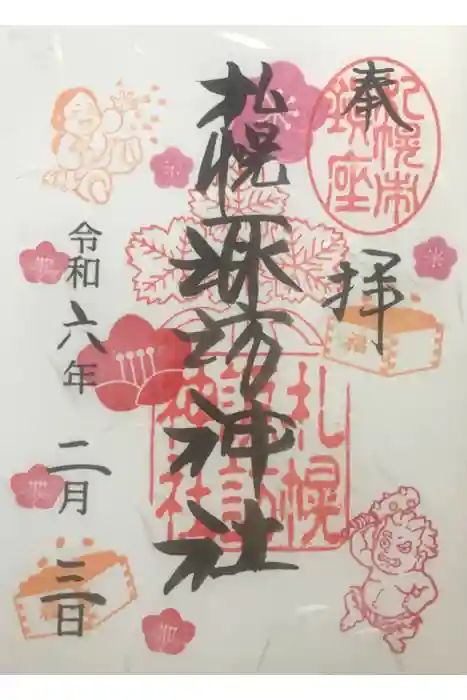 奉
拝
札幌市
鎮座
札幌諏訪神社
札幌
諏訪
神社
福
令和六年
二月
三日